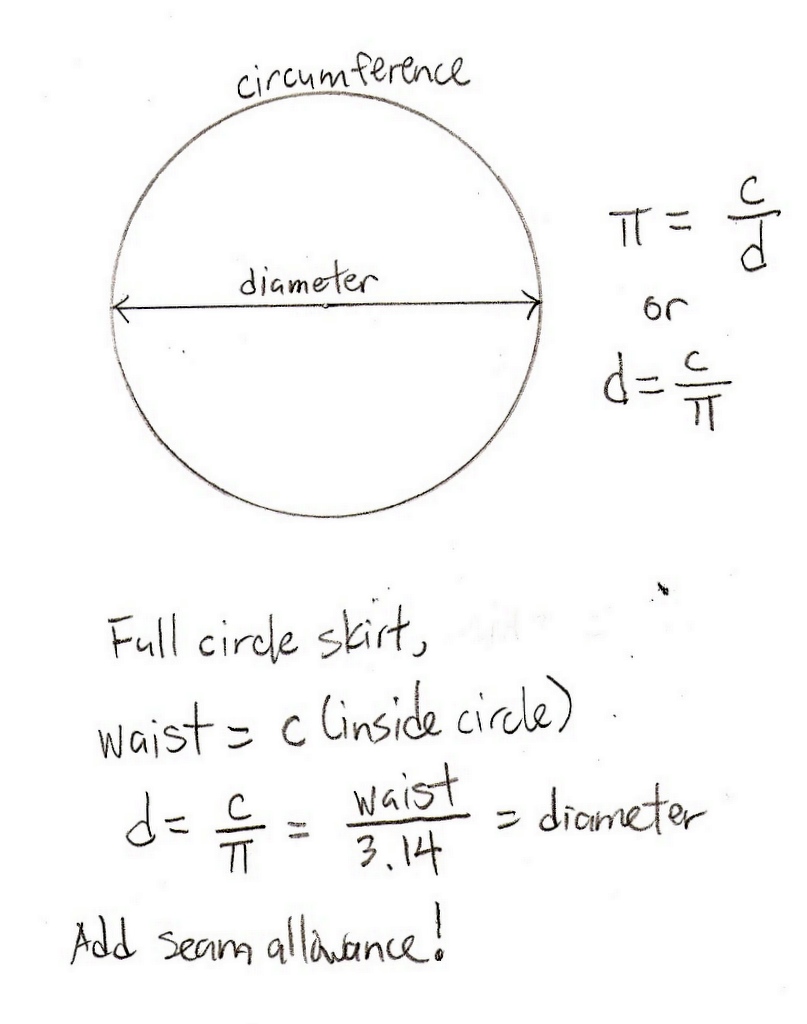 circumference
diameter
π = c/d
or
d = c/π
Full circle skirt,
waist = c (inside circle)
d = c/π = waist/3.14 = diameter
Add seam allowance!